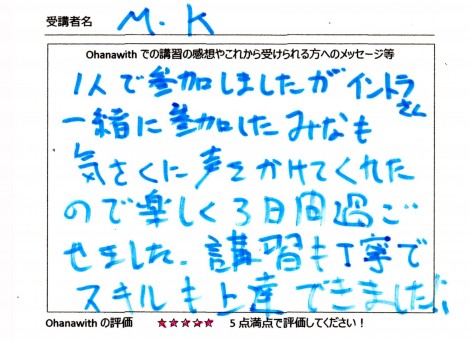 受講者名 M.K
Ohanawith での講習の感想やこれから受けられる方へのメッセージ等
1人で参加しましたがイントラさん
一緒に参加したみなも
気さくに声をかけてくれた
ので楽しく3日間過ご
せました。講習も丁寧で
スキルも上達できました!
Ohanawith の評価 ★★★★★ 5点満点で評価してください!